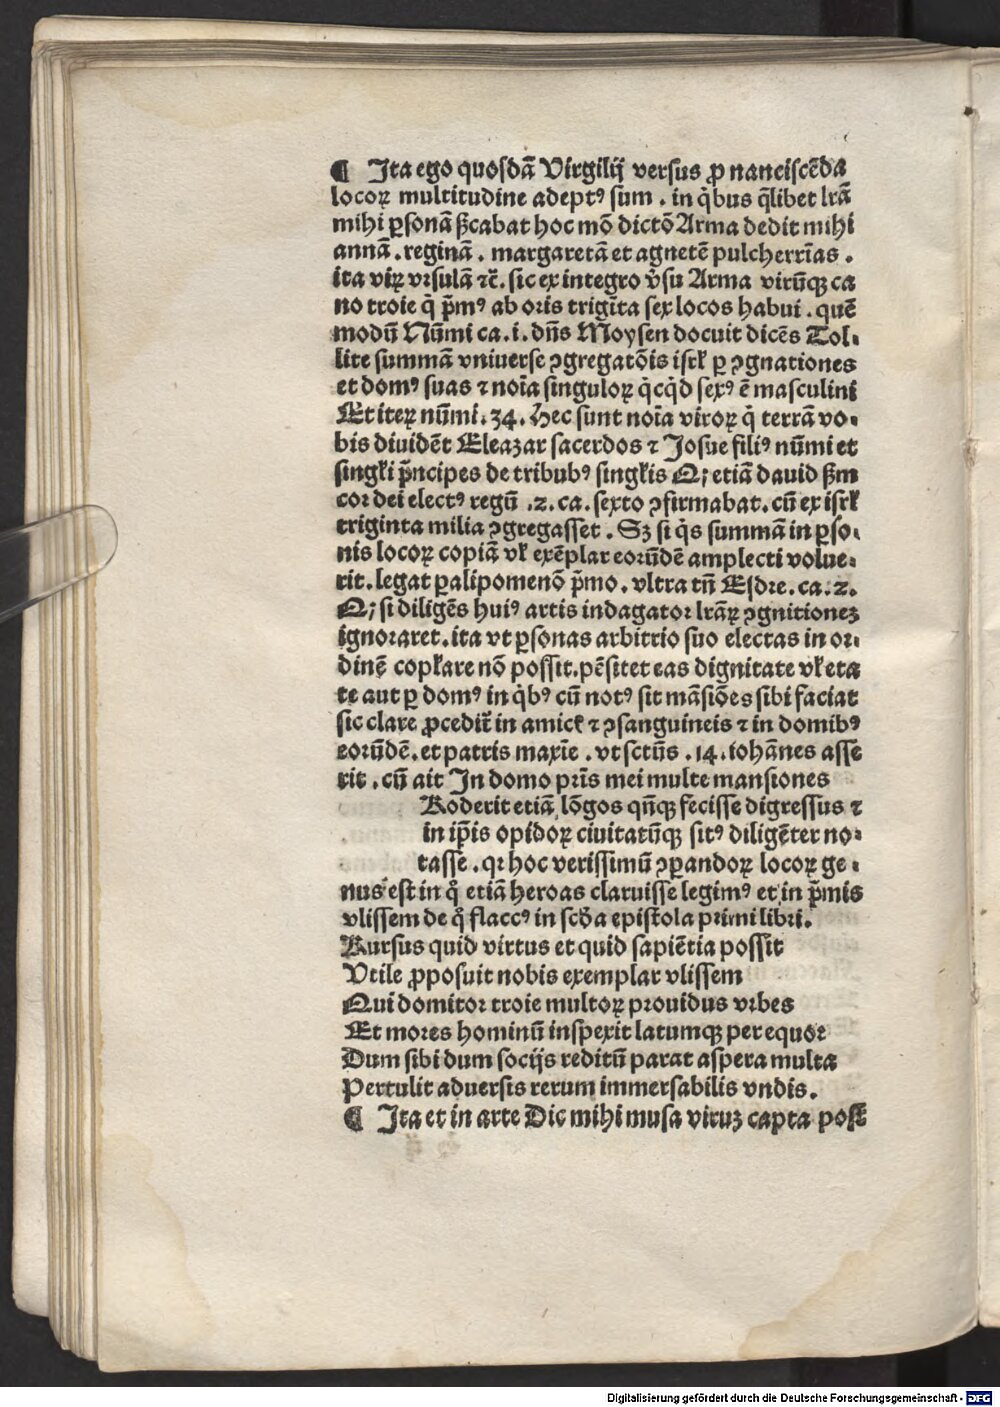 ¶ Ita ego quosdā Virgilij versus ꝓ nanciscēda
locoꝝ multitudine adeptꝰ sum . in q̇bus q̄libet lrā
mihi ꝑsonā ẜcabat hoc mō dictō Arma dedit mihi
annā . reginā . margaretā et agnetē pulcherrīas .
ita viꝝ vrsulā ⁊c̄. sic ex integro v̓su Arma virūqꝫ ca
no troie q̇ p̄mꝰ ab oris trigīta sex locos habui . quē
modū Nūmi ca. i. dn̄s Moysen docuit dicēs Tol⸗
lite summā vniuerse ꝯgregatōis isrl̓ ꝑ ꝯgnationes
et domꝰ suas ⁊ noīa singuloꝝ q̇cq̇d sexꝰ ē masculini
Et iteꝝ nūmi. 34. Hec sunt noīa viroꝝ q̇ terrā vo⸗
bis diuidēt Eleazar sacerdos ⁊ Josue filiꝰ nūmi et
singl̓i p̄ncipes de tribubꝰ singl̓is Qꝫ etiā dauid ẜm
cor dei electꝰ regū .2. ca. sexto ꝯfirmabat. cū ex isrl̓
triginta milia ꝯgregasset . Sꝫ si q̇s summā in ꝑso⸗
nis locoꝝ copiā vl̓ exēplar eorūdē amplecti volue⸗
rit. legat ꝑalipomenō p̄mo. vltra tn̄ Esdre. ca. 2.
Qꝫ si diligēs huiꝰ artis indagator lrāꝝ ꝯgnitionez
ignoraret. ita vt ꝑsonas arbitrio suo electas in or⸗
dinē copl̓are nō possit. pēsitet eas dignitate vl̓ eta
te aut ꝑ domꝰ in q̇bꝰ cū notꝰ sit māsiōes sibi faciat
sic clare ꝓcedit̄ in amicl̓ ⁊ ꝯsanguineis ⁊ in domibꝰ
eorūdē. et patris maxīe . vt sctūs . 14. iohānes asse
rit . cū ait In domo pr̄is mei multe mansiones
Roderit etiā lōgos qn̄qꝫ fecisse digressus ⁊
in ip̄is opidoꝝ ciuitatūqꝫ sitꝰ diligēter no⸗
tasse . qꝛ hoc verissimū ꝯꝑandoꝝ locoꝝ ge⸗
nus est in q̊ etiā heroas claruisse legimꝰ et in p̄mis
vlissem de q̊ flaccꝰ in scd̓a epistola primi libri.
Rursus quid virtus et quid sapiētia possit
Vtile ꝓposuit nobis exemplar vlissem
Qui domitor troie multoꝝ prouidus vrbes
Et mores hominū inspexit latumqꝫ per equor
Dum sibi dum socijs reditū parat aspera multa
Pertulit aduersis rerum immersabilis vndis .
¶ Ita et in arte Dic mihi musa viruꝫ capta post̄
Digitalisierung gefördert durch die Deutsche Forschungsgemeinschaft - DFG